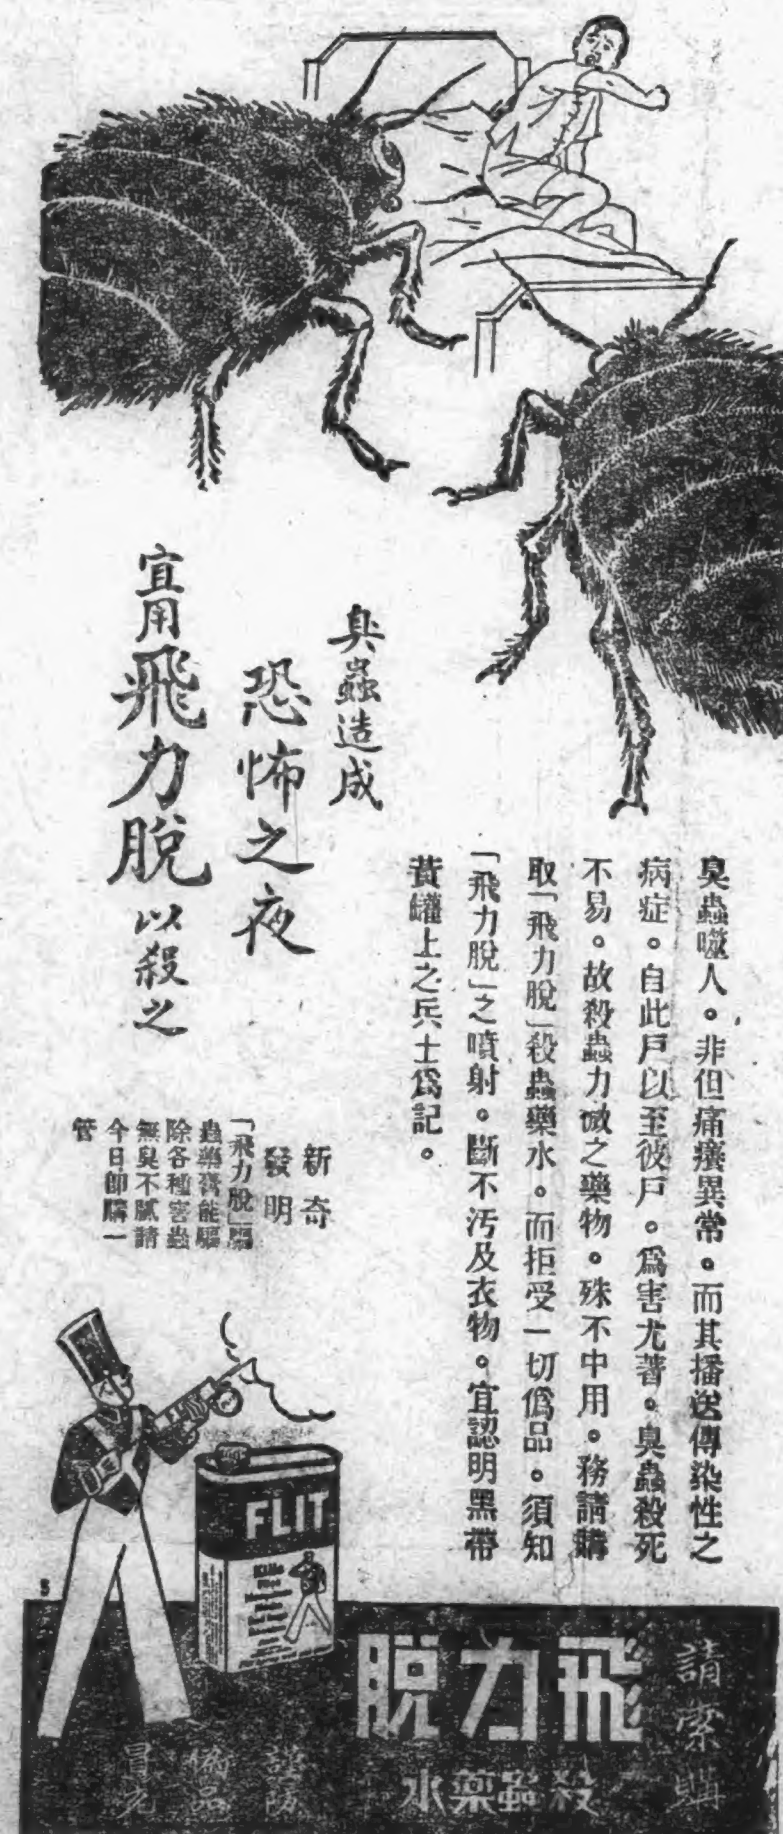 臭蟲造成
恐怖之夜
宜用飛力脫以殺之
臭蟲噬人。非但痛癢異常。而其播送傳染性之
病症。自此戶以至彼戶。爲害尤著。臭蟲殺死
不易。故殺蟲力微之藥物。殊不中用。務請購
取「飛力脫」殺蟲藥水。而拒受一切僞品。須知
「飛力脫」之噴射。斷不汚及衣物。宜認明黑帶
黃罐上之兵士爲記。
新奇
發明
「飛力脫」驅
蟲藥膏能驅
除各種害蟲
無臭不膩請
今日卽購一
管
FLIT
5
請索購
飛力脫
殺蟲藥水
謹防
僞品
冒充